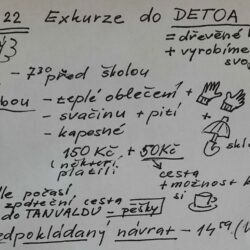 22 Exkurze do DETOA
= dřevěné
+ vyrobíme
svo
- 7³⁰ před školou
bou - teplé oblečení +
- svačinu + pití +
- kapesné
150 Kč + 50 Kč
(někteří
platili)
cesta
+ možnost k
si
le počasí
zpáteční cesta
do TANVALDU = pěšky
edpokládaný návrat - 14